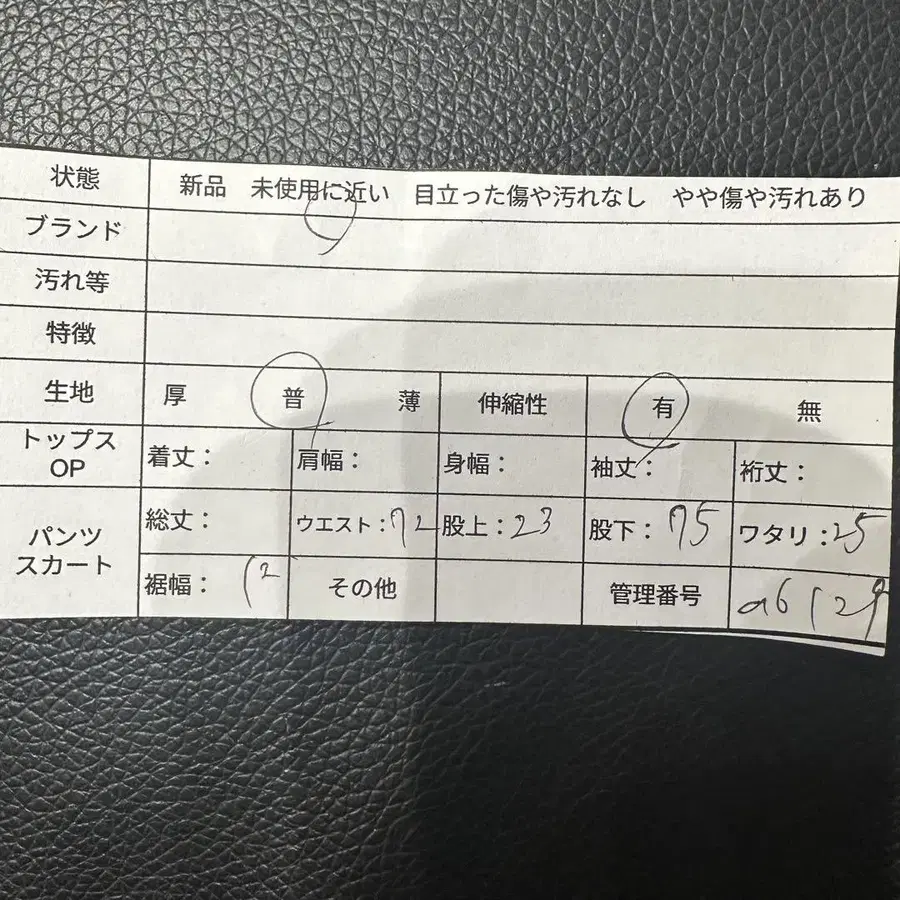 状態 新品 未使用に近い 目立った傷や汚れなし やや傷や汚れあり
ブランド
汚れ等
特徴
生地 厚 普 薄 伸縮性 有 無
トップス
OP
着丈： 肩幅： 身幅： 袖丈： 裄丈：
パンツ
スカート
総丈： ウエスト：72 股上：23 股下：75 ワタリ：25
裾幅：12 その他 管理番号 a6129